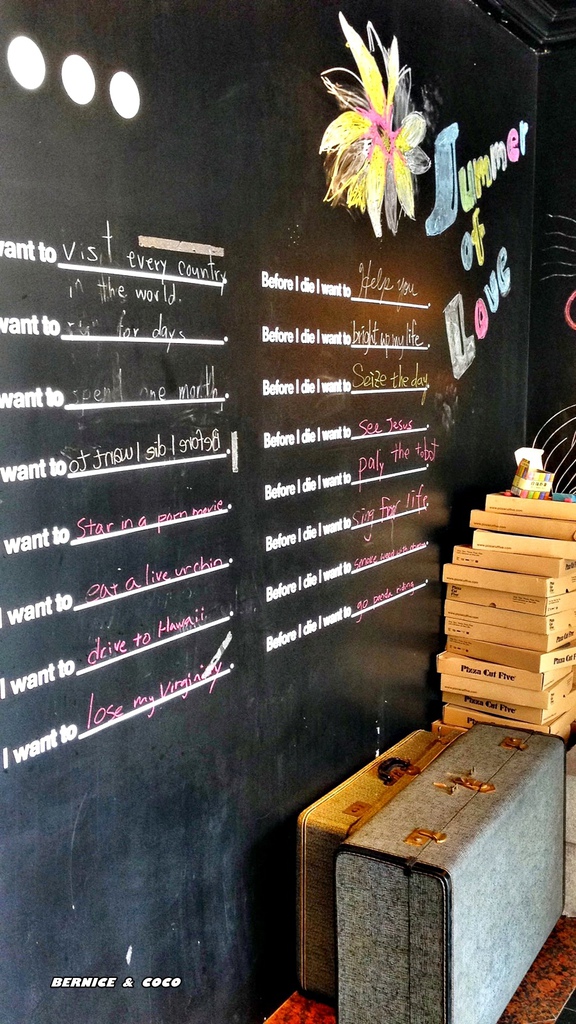 want to visit every country
in the world.
want to run for days.
want to spend one month.
want to Before I die I want to
want to Star in a porn movie.
I want to eat a live urchin.
I want to drive to Hawaii.
I want to lose my Virginity.
Before I die I want to Helps you.
Before I die I want to bright up my life.
Before I die I want to Seize the day.
Before I die I want to see Jesus.
Before I die I want to paly the tobot
Before I die I want to sing for life.
Before I die I want to smoke weed with
Before I die I want to go panda riding.
Summer
of
Love
Pizza Cut Five
Pizza Cut Five
BERNICE & COCO